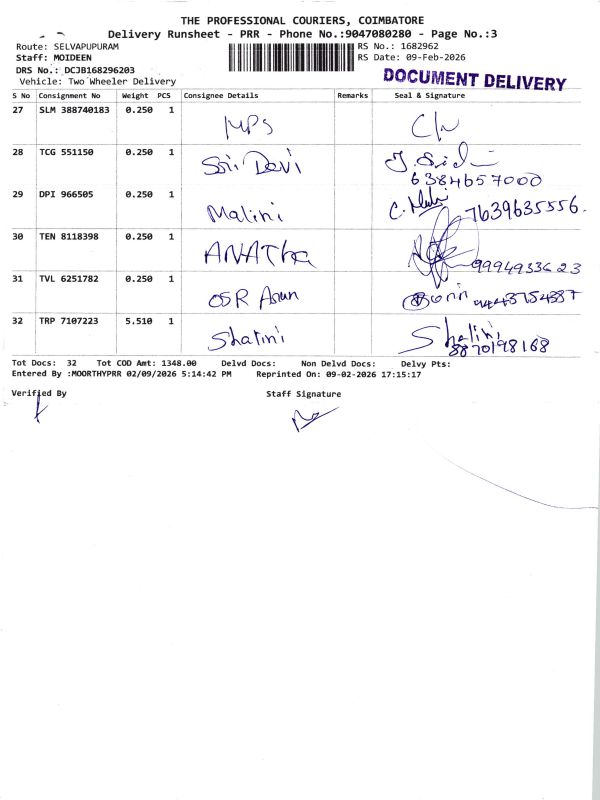 THE PROFESSIONAL COURIERS, COIMBATORE
Delivery Runsheet - PRR - Phone No.:9047080280 - Page No.:3
Route: SELVAPUPURAM RS No.: 1682962
Staff: MOIDEEN RS Date: 09-Feb-2026
DRS No.: DCJB168296203
Vehicle: Two Wheeler Delivery
DOCUMENT DELIVERY
S No Consignment No Weight PCS Consignee Details Remarks Seal & Signature
27 SLM 388740183 0.250 1 MPS
28 TCG 551150 0.250 1 Sri Devi
6384657000
29 DPI 966505 0.250 1 Malini 7639635556.
30 TEN 8118398 0.250 1 ANATha 9994933623
31 TVL 6251782 0.250 1 OSR Arun
32 TRP 7107223 5.510 1 Shalini Shalini
8870198168
Tot Docs: 32 Tot COD Amt: 1348.00 Delvd Docs: Non Delvd Docs: Delvy Pts:
Entered By :MOORTHYPRR 02/09/2026 5:14:42 PM Reprinted On: 09-02-2026 17:15:17
Verified By Staff Signature